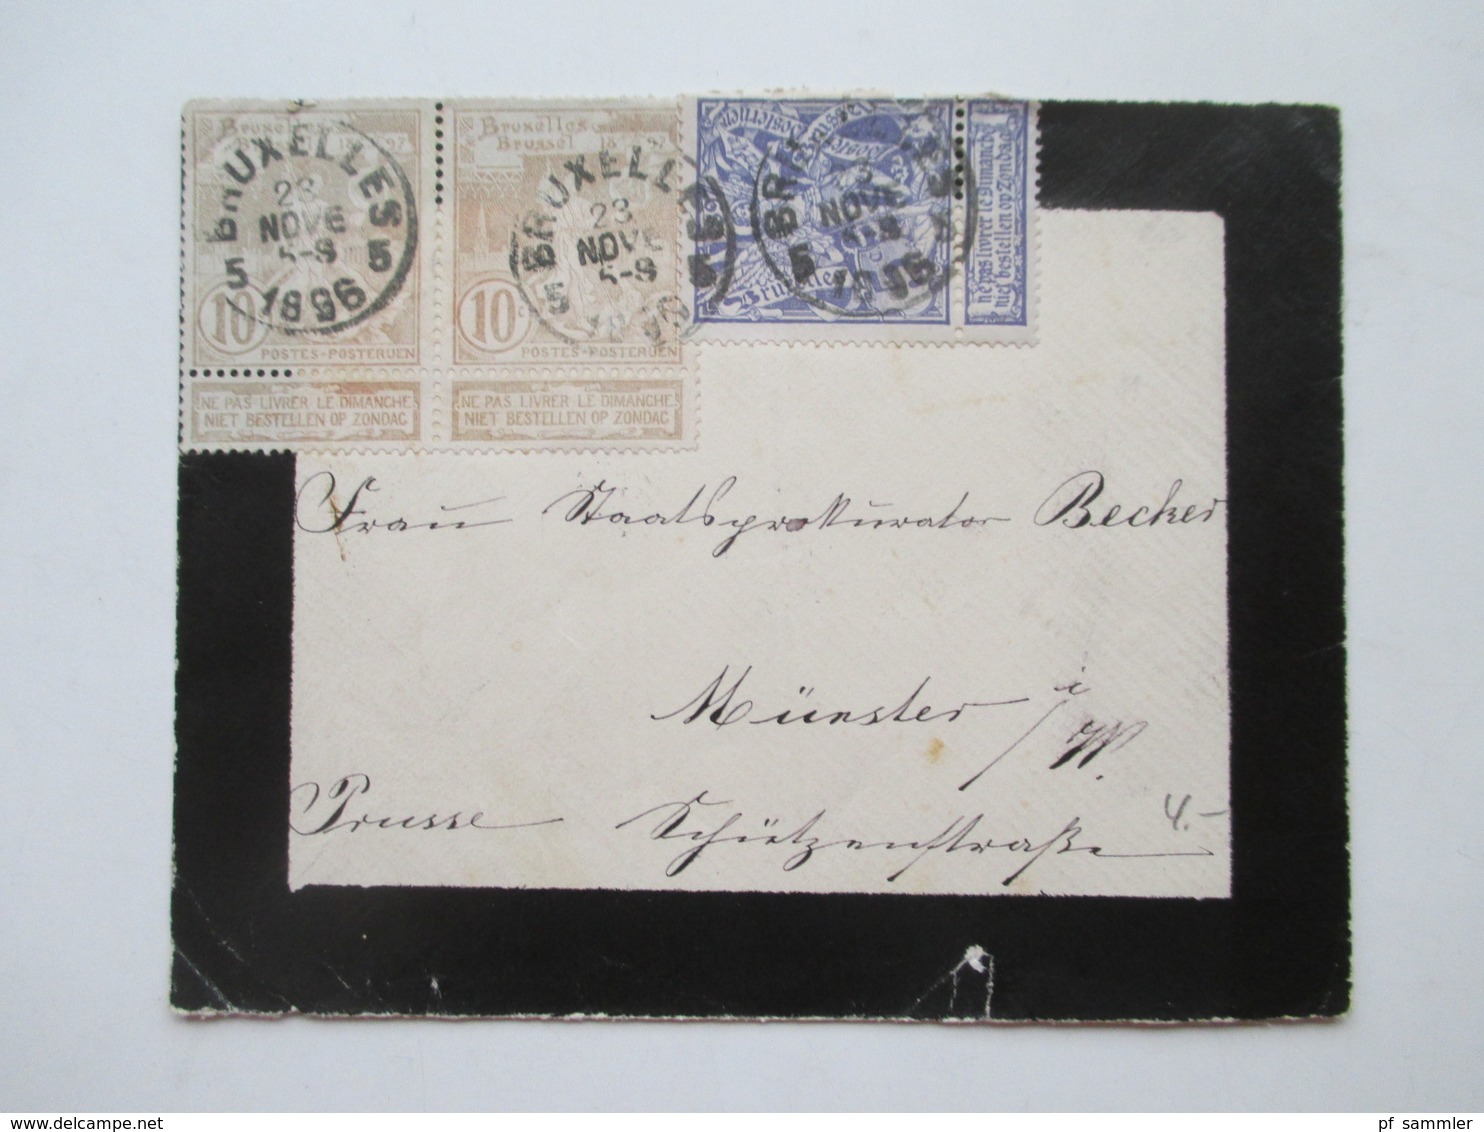 Bruxelles
Brussel 1897
BRUXELLES
23
NOVE
5-8
1896
5 5
10
POSTES-POSTERIJEN
NE PAS LIVRER LE DIMANCHE
NIET BESTELLEN OP ZONDAG
Bruxelles
Brussel 1897
BRUXELLES
23
NOVE
5-8
1896
5 5
10 c
POSTES-POSTERIJEN
NE PAS LIVRER LE DIMANCHE
NIET BESTELLEN OP ZONDAG
NOVE
5
ne pas livrer le Dimanche
niet bestellen op Zondag
Frau Staatsprokurator Becker
Münster i/W.
Prusse Schützenstraße
4.-
pf sammler